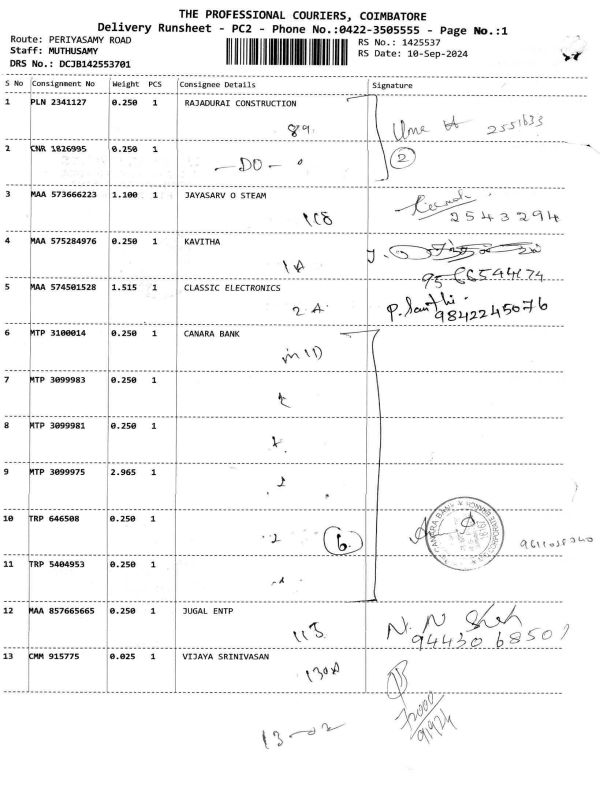 THE PROFESSIONAL COURIERS, COIMBATORE
Delivery Runsheet - PC2 - Phone No.:0422-3505555 - Page No.:1
Route: PERIYASAMY ROAD
RS No.: 1425537
Staff: MUTHUSAMY
RS Date: 10-Sep-2024
DRS No.: DCJB142553701
S No Consignment No Weight PCS Consignee Details Signature
1 PLN 2341127 0.250 1 RAJADURAI CONSTRUCTION
89. 2551633
2 CNR 1826995 0.250 1
-DO- 2
3 MAA 573666223 1.100 1 JAYASARV O STEAM
2543294
4 MAA 575284976 0.250 1 KAVITHA
1A
5 MAA 574501528 1.515 1 CLASSIC ELECTRONICS
2 A. P. Santhi. 9842245076
6 MTP 3100014 0.250 1 CANARA BANK
7 MTP 3099983 0.250 1
8 MTP 3099981 0.250 1
9 MTP 3099975 2.965 1
10 TRP 646508 0.250 1
6 CANARA BANK
11 TRP 5404953 0.250 1
12 MAA 857665665 0.250 1 JUGAL ENTP
N. N Shah
13 CMM 915775 0.025 1 VIJAYA SRINIVASAN
130A